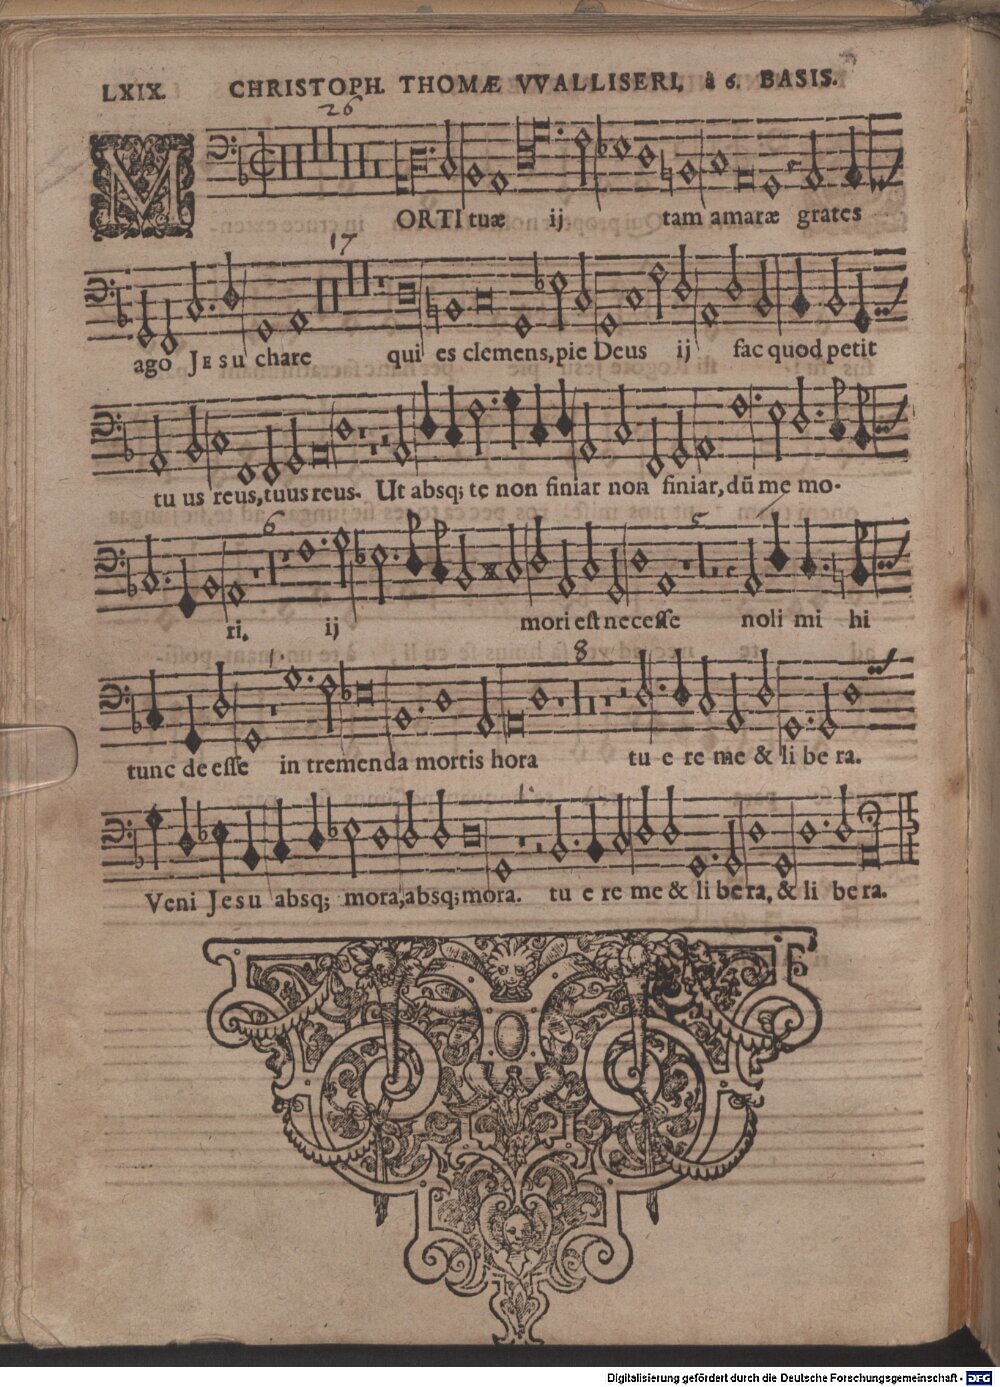 LXIX. CHRISTOPH. THOMÆ VVALLISERI, à 6. BASIS.
26
MORTI tuæ ij tam amaræ grates
17
ago JESU chare qui es clemens, pie Deus ij fac quod petit
tu us reus, tuus reus. Ut absq; te non finiar non finiar, dũ me mo-
6 5
ri. ij mori est necesse noli mi hi
8
tunc de esse in tremenda mortis hora tu e re me & li be ra.
Veni Jesu absq; mora, absq; mora. tu e re me & li be ra, & li be ra.
Digitalisierung gefördert durch die Deutsche Forschungsgemeinschaft - DFG